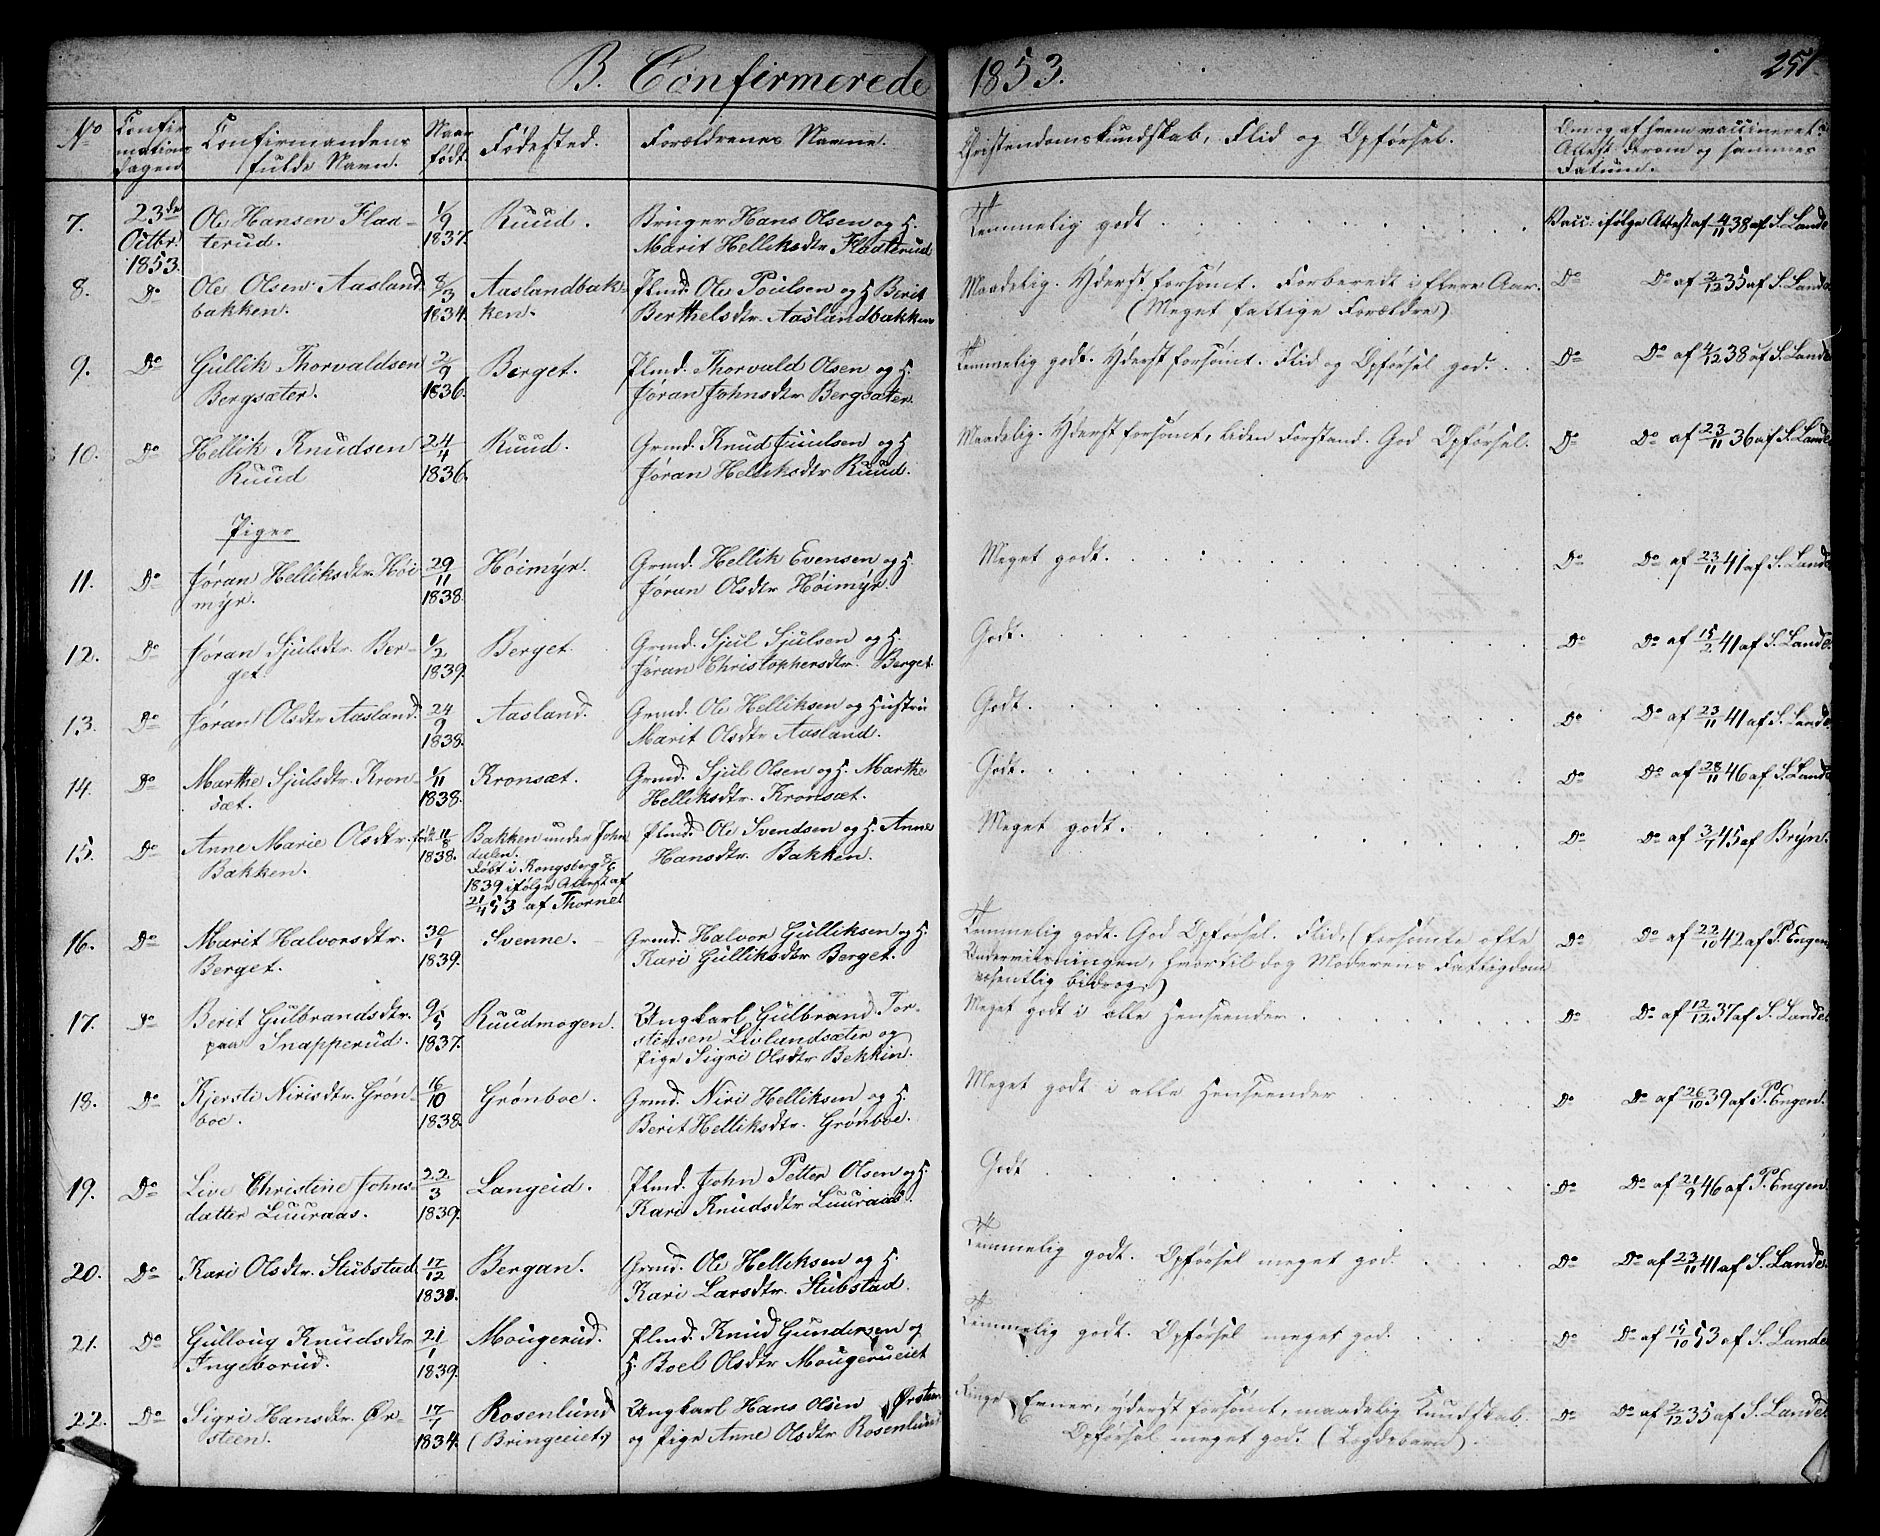 B. Confirmerede 1853. 251
No
Confir-
mations
dagen
Confirmandens
fulde Navn.
Naar
født.
Fødested.
Forældrenes Navne.
Christendomskundskab, Flid og Opførsel.
Om og af hvem vaccineret,
Attest derom og sammes
Datum.
7. 23de Octbr. 1853. Ole Hansen Flaa-
terud. 1/9 1837. Ruud. Bruger Hans Olsen og H.
Marit Helliksdtr Flaaterud
Temmelig godt Vacc: ifølge Attest af 4/11 38 af S. Lande
8. Do Ole Olsen Aasland
bakken. 8/3 1834. Aaslandbak-
ken. Plmd. Ole Poulsen og H Berit
Berthelsdtr. Aaslandbakken
Maadelig. Yderst forsømt. Forberedt i flere Aar.
(Meget fattige Forældre) Do Do af 2/12 35 af S. Lande
9. Do Gullik Thorvaldsen
Bergsæter. 2/9 1836. Berget. Plmd. Thorvald Olsen og H.
Jøran Johnsdtr Bergsæter.
Temmelig godt. Yderst forsømt. Flid og Opførsel god. Do Do af 4/12 38 af S. Lande
10. Do Hellik Knudsen
Ruud 24/4 1836. Ruud. Grmd. Knud Juulsen og H
Jøran Helliksdtr Ruud.
Maadelig. Yderst forsømt, liden Forstand. God Opførsel. Do Do af 23/11 36 af S. Lande
Piger
11. Do Jøran Helliksdtr. Høi
myr. 29/11 1838. Høimyr. Grmd. Hellik Evensen og H.
Jøran Olsdtr Høimyr.
Meget godt. Do Do af 23/11 41 af S. Lande
12. Do Jøran Sjulsdtr. Ber-
get. 1/2 1839. Berget. Grmd. Sjul Sjulsen og H.
Jøran Christophersdtr. Berget.
Godt. Do Do af 15/2 41 af S. Lande.
13. Do Jøran Olsdtr Aasland. 24/9 1838. Aasland. Grmd. Ole Helliksen og Hustru
Marit Olsdtr Aasland.
Godt. Do Do af 23/11 41 af S. Lande
14. Do Marthe Sjulsdtr. Kron-
sæt. 1/11 1838. Kronsæt. Grmd. Sjul Olsen og H. Marthe
Helliksdtr. Kronsæt.
Godt. Do Do af 28/11 46 af S. Lande
15. Do Anne Marie Olsdtr.
Bakken. født 11/8 1838. Bakken under John
dalen.
Døbt i Kongsberg 8/6
1839 ifølge Attest af
21/4 53 af Thorne
Plmd. Ole Svendsen og H. Anne
Hansdtr. Bakken.
Meget godt. Do Do af 3/7 45 af Bryn.
16. Do Marit Halvorsdtr.
Berget. 30/1 1839. Svenne. Grmd. Halvor Gulliksen og H
Kari Gulliksdtr Berget.
Temmelig godt. God Opførsel. Flid, (forsømte ofte
Underviisningen, hvortil dog Moderens Fattigdom
væsentlig bidrog.) Do Do af 22/10 42 af P. Engen
17. Do Berit Gulbrandsdtr.
paa Snapperud. 9/5 1837. Ruudmogen. Ungkarl Gulbrand Tor-
stensen Livlandsæter og
Pige Sigri Olsdtr Bekkin.
Meget godt i alle Henseender Do Do af 12/12 37 af S. Lande
18. Do Kjersti Nirisdtr. Grøn-
boe. 16/10 1838. Grønboe. Grmd. Niri Helliksen og H.
Berit Helliksdtr. Grønboe.
Meget godt i alle Henseender Do Do af 26/10 39 af P. Engen.
19. Do Live Christine Johns-
datter Luuraas. 22/3 1839. Langeid. Plmd. John Petter Olsen og H.
Kari Knudsdtr Luuraas.
Godt Do Do af 21/9 46 af P. Engen
20. Do Kari Olsdtr. Stubstad. 17/12 1838. Bergan. Grmd. Ole Helliksen og H.
Kari Larsdtr. Stubstad.
Temmelig godt. Opførsel meget god. Do Do af 23/11 41 af S. Lande.
21. Do Gulloug Knudsdtr
Ingeborud. 21/1 1839. Mougerud. Plmd. Knud Gundersen og
H. Boel Olsdtr Mougerueiet
Temmelig godt. Opførsel meget god. Do Do af 15/10 53 af S. Lande
22. Do Sigri Hansdtr. Ør-
steen. 17/1 1834. Rosenlund
(Bringeeiet) Ungkarl Hans Olsen Ørsteen
og Pige Anne Olsdtr Rosenlund
Ringe Evner, yderst forsømt, maadelig Kundskab.
Opførsel meget god. (Lægdebarn). Do Do af 2/12 35 af S. Lande